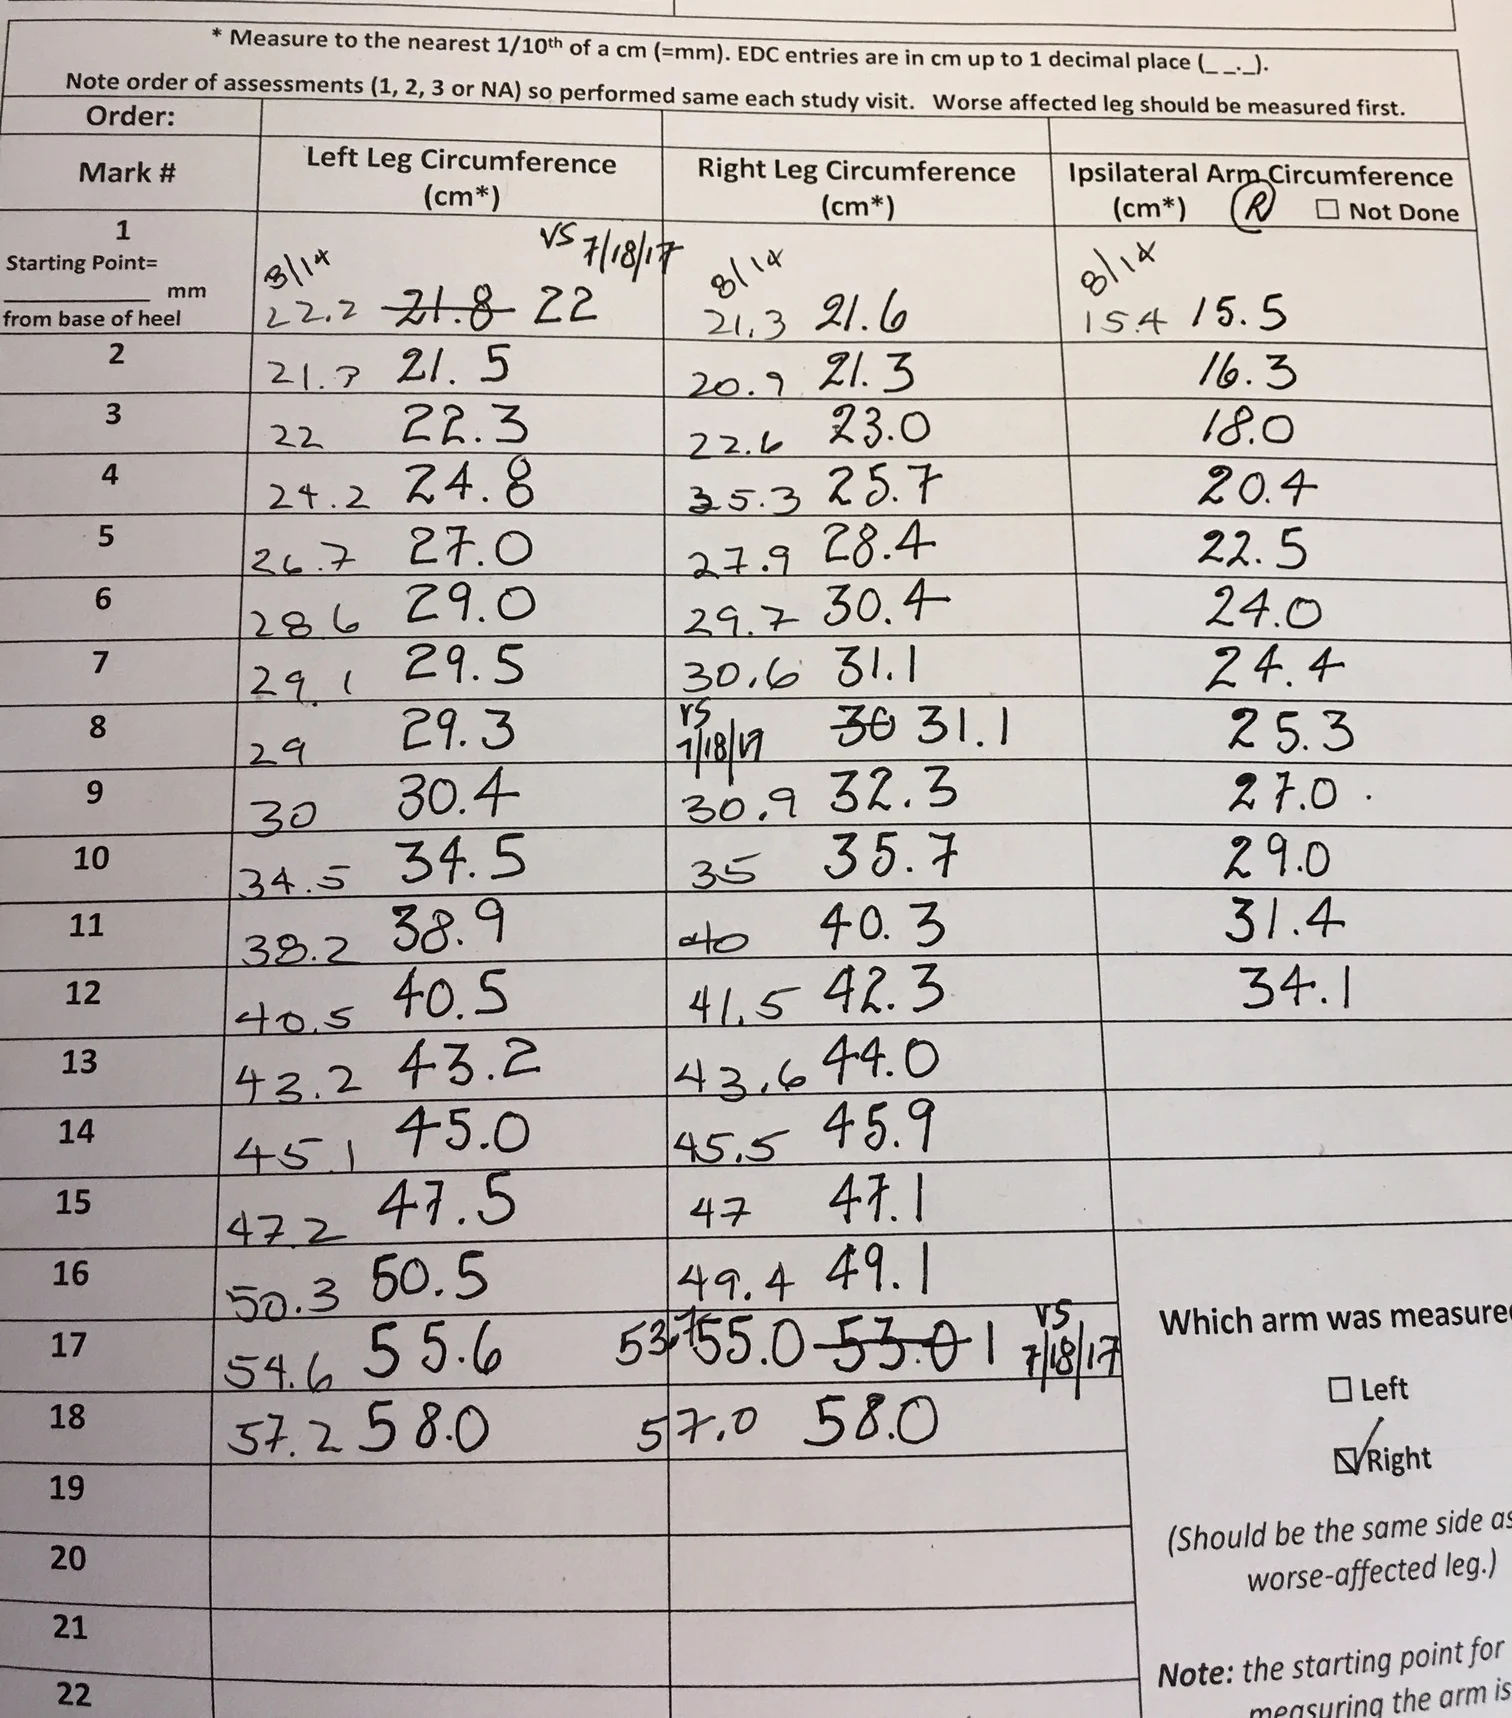 * Measure to the nearest 1/10th of a cm (=mm). EDC entries are in cm up to 1 decimal place (_ _._).
Note order of assessments (1, 2, 3 or NA) so performed same each study visit. Worse affected leg should be measured first.
Order:
Mark # Left Leg Circumference (cm*) Right Leg Circumference (cm*) Ipsilateral Arm Circumference (cm*) R ☐ Not Done
1
Starting Point=
______ mm
from base of heel
8/14 VS 7/18/17 8/14 8/14
22.2 21.8 22 21.3 21.6 15.4 15.5
2 21.3 21.5 20.9 21.3 16.3
3 22 22.3 22.6 23.0 18.0
4 24.2 24.8 25.3 25.7 20.4
5 26.7 27.0 27.9 28.4 22.5
6 28.6 29.0 29.7 30.4 24.0
7 29.1 29.5 30.6 31.1 24.4
8 29 29.3 VS 7/18/17 30 31.1 25.3
9 30 30.4 30.9 32.3 27.0
10 34.5 34.5 35 35.7 29.0
11 38.2 38.9 40 40.3 31.4
12 40.5 40.5 41.5 42.3 34.1
13 43.2 43.2 43.6 44.0
14 45.1 45.0 45.5 45.9
15 47.2 47.5 47 47.1
16 50.3 50.5 49.4 49.1
17 54.6 55.6 53.7 55.0 53.0 VS 7/18/17
18 57.2 58.0 57.0 58.0
19
20
21
22
Which arm was measure
☐ Left
☑ Right
(Should be the same side as
worse-affected leg.)
Note: the starting point for
measuring the arm is